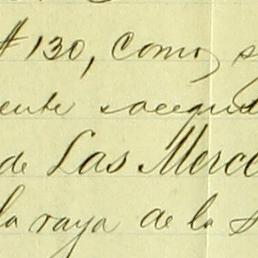 #130, como, s
ente acequi
de Las Merce
la raya de la S